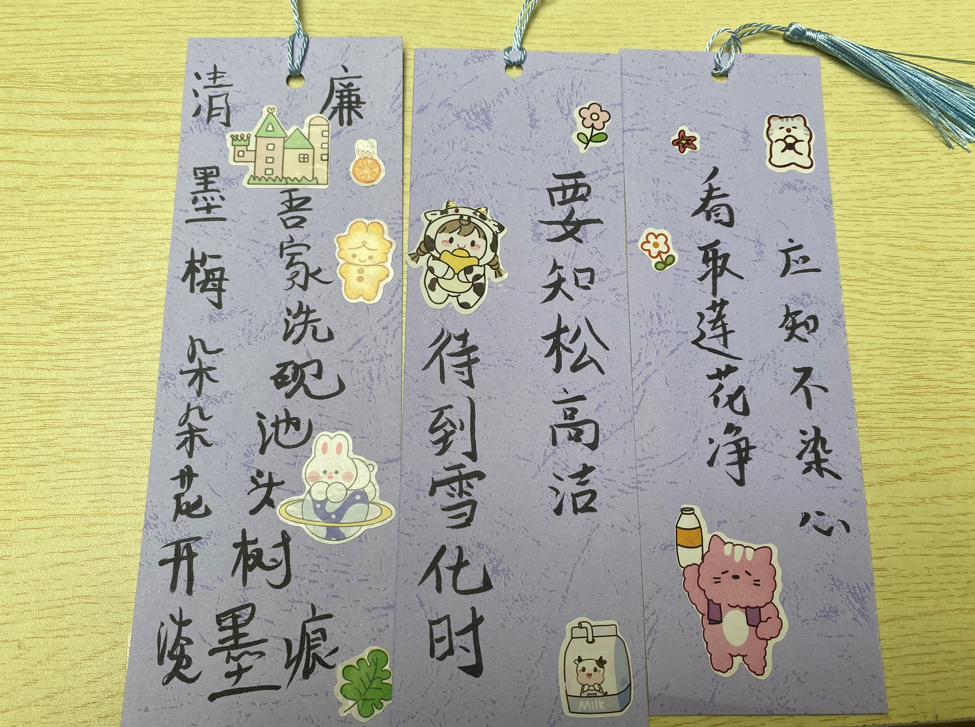 清廉
墨梅
吾家洗砚池头树
朵朵花开淡墨痕
要知松高洁
待到雪化时
看取莲花净
应知不染心
Milk